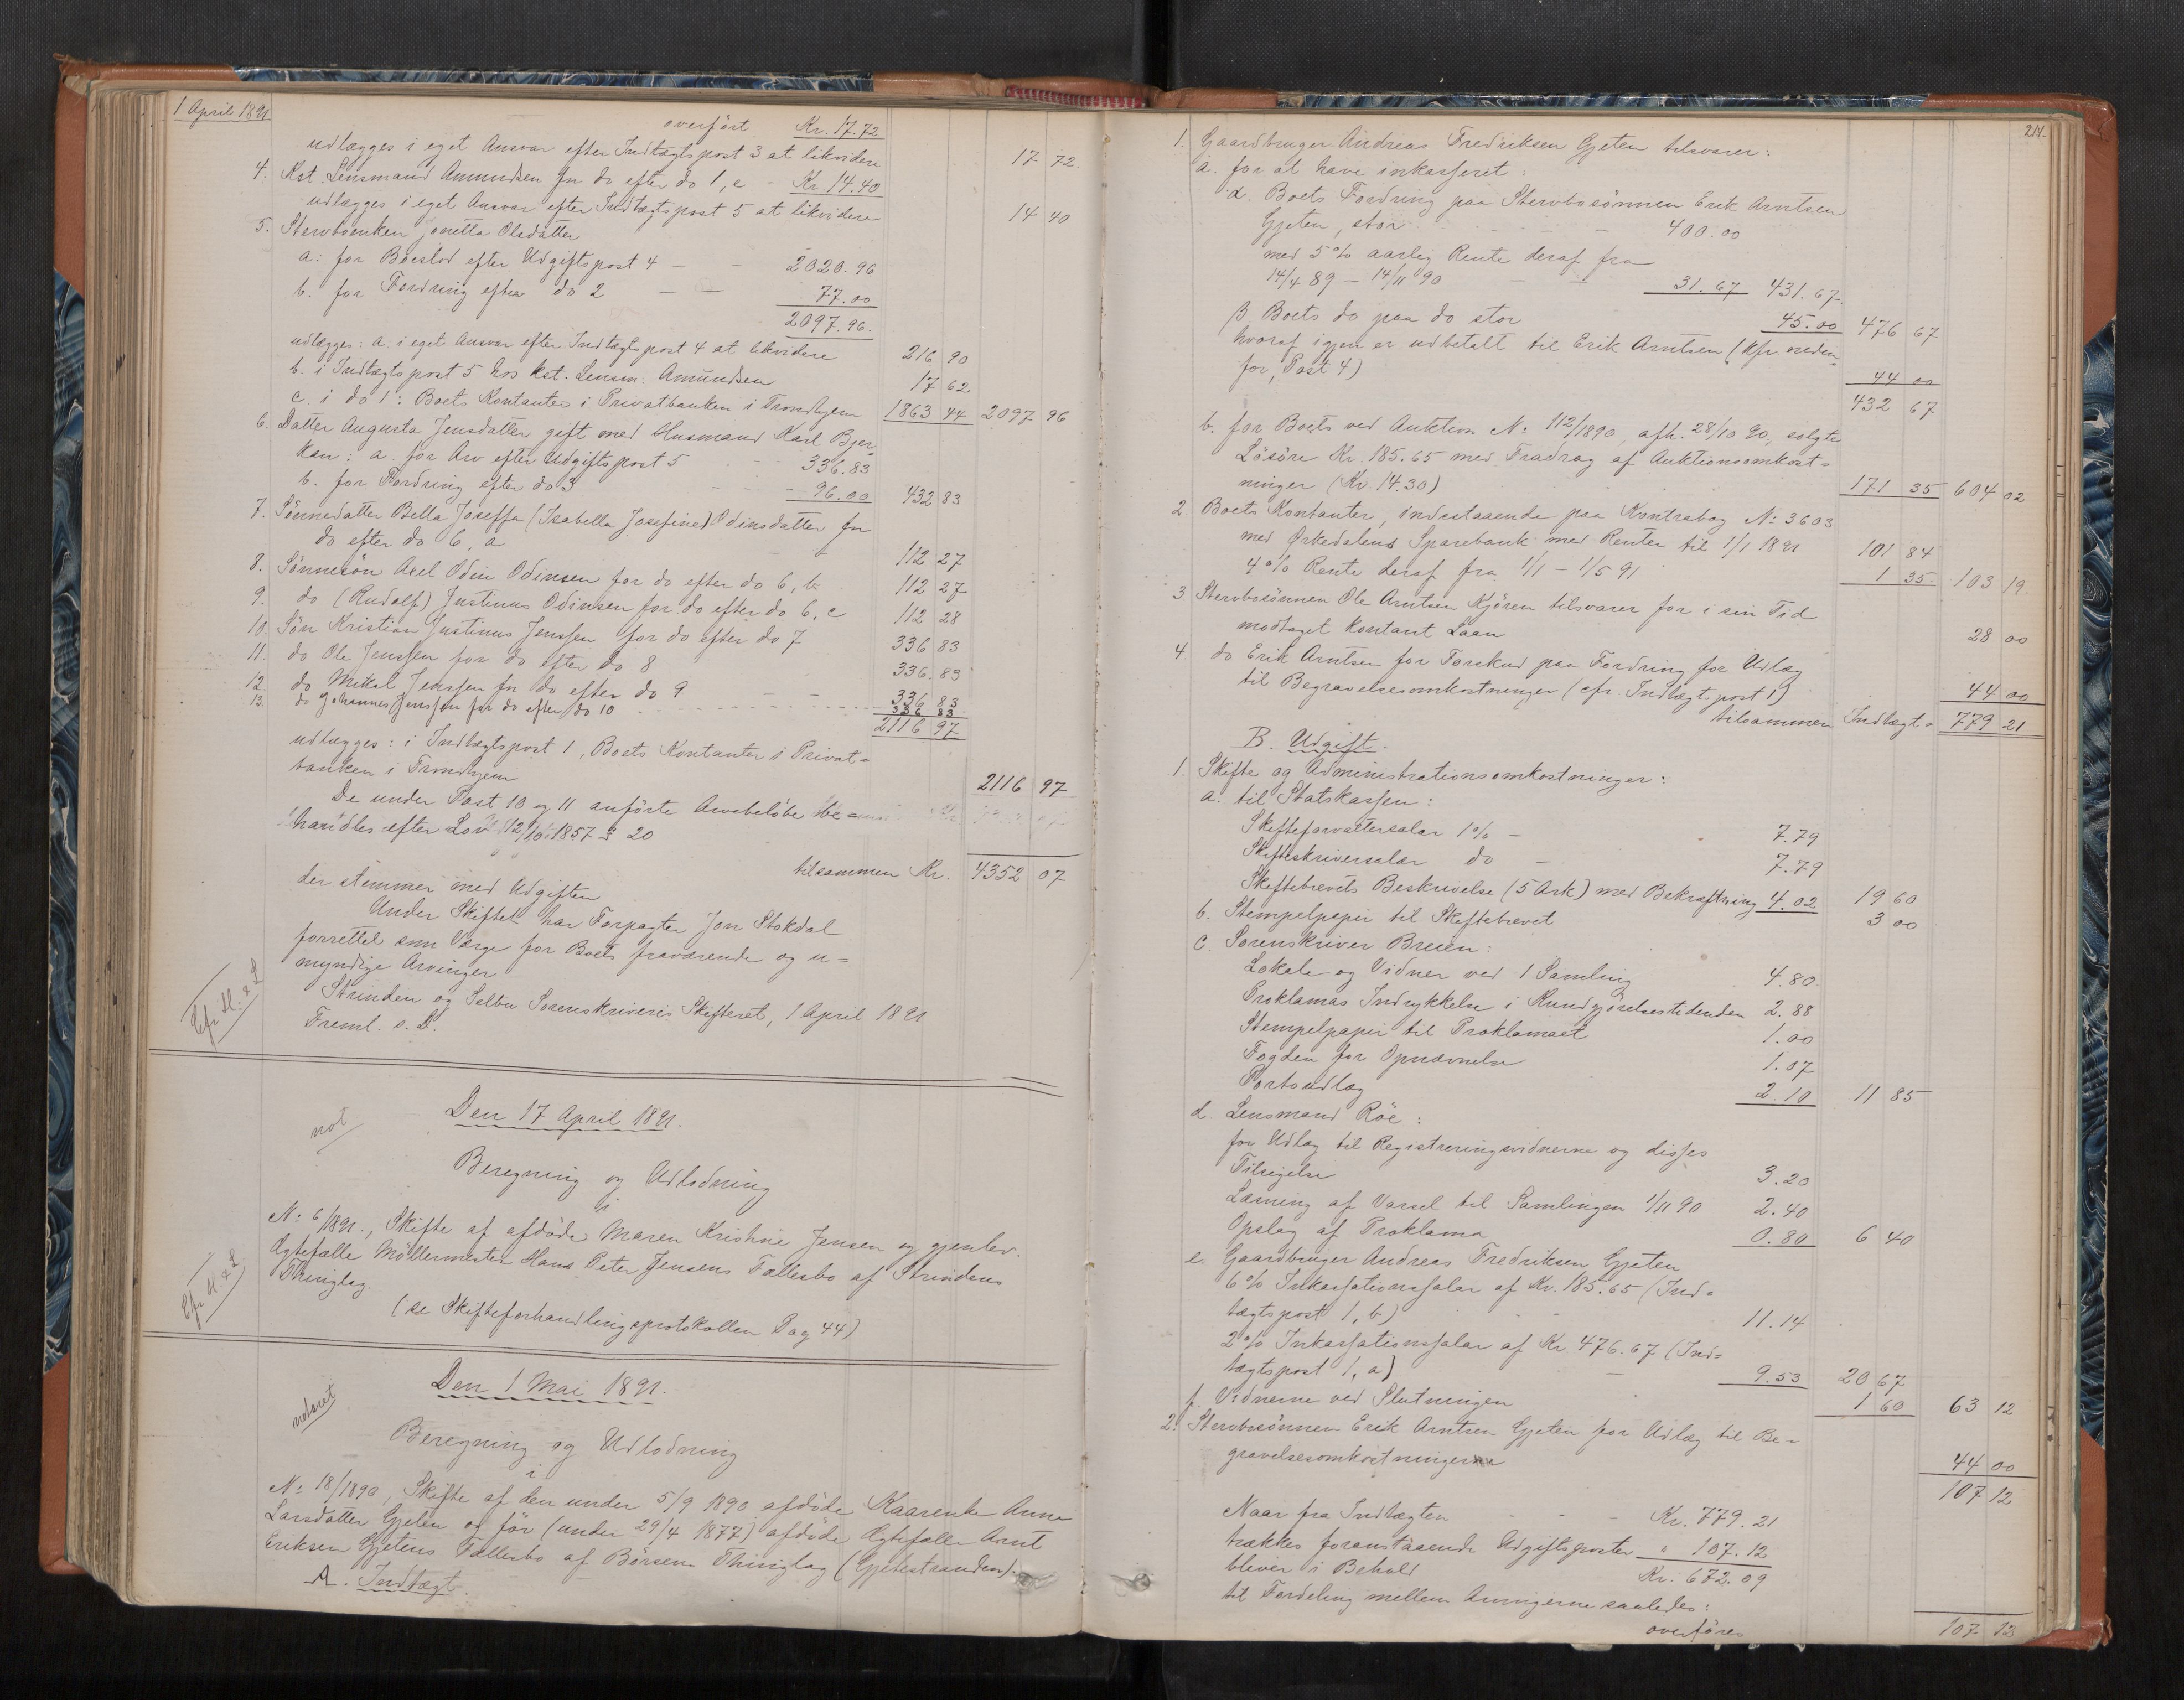 1 April 1891.
overført Kr. 17.72
udlægges i eget Ansvar efter Indtægtspost 3 at likvidere 17 72.
4. Kst. Lensmand Amundsen for do efter do 1, e - Kr. 14.40
udlægges i eget Ansvar efter Indtægtspost 5 at likvidere 14 40
5. Stervboenken Jonetta Olsdatter
a: for Boeslod efter Udgiftspost 4 - - 2020.96
b. for Fordring efter do 2 - - 77.00
2097.96.
udlægges: a. i eget Ansvar efter Indtægtspost 4 at likvidere 216 90
b. i Indtægtspost 5 hos kst. Lensm. Amundsen 17 62
c. i do 1: Boets Kontanter i Privatbanken i Trondhjem 1863 44 2097 96
6. Datter Augusta Jensdatter gift med Husmand Karl Bjer-
kan: a. for Arv efter Udgiftspost 5 - - 336.83
b. for Fordring efter do 3 - - - 96.00 432 83
7. Sønnedatter Bella Joseffa (Isabella Josefine) Odinsdatter for
do efter do 6, a - - 112 27
8. Sønnesøn Axel Odin Odinsen for do efter do 6, b 112 27
9. do (Rudolf) Justinus Odinsen for do efter do 6, c 112 28
10. Søn Kristian Justinus Jenssen for do efter do 7. 336 83
11. do Ole Jenssen for do efter do 8 336.83
12. do Mikal Jenssen for do efter do 9 - - 336 83
13. do Johannes Jenssen for do efter do 10 336 83
2116 97
udlægges: i Indtægtspost 1, Boets Kontanter i Privat-
banken i Trondhjem 2116 97
De under Post 10 og 11 anførte Arvebeløbe be-
handles efter Lov 12/10 1857 § 20
tilsammen Kr. 4352 07
der stemmer med Udgiften
Under Skiftet har Forpagter Jon Stokdal
forrettet som Værge for Boets fraværende og u-
myndige Arvinger
Strinden og Selbu Sorenskriveris Skifteret, 1 April 1891
Freml. s. D.
Cfr. H. & L
Den 17 April 1891.
not
Beregning og Udlodning
i
No 6/1891., Skifte af afdøde Maren Kristine Jensen og gjenlev.
Ægtefælle Møllermester Hans Peter Jensens Fællesbo af Strindens
Thinglag.
Cfr. H. & L.
(se Skifteforhandlingsprotokollen Pag 44)
Den 1 Mai 1891.
noteret
Beregning og Udlodning
i
No 18/1890, Skifte af den under 5/9 1890 afdøde Kaarenke Anne
Larsdatter Gjeten og før (under 29/4 1877) afdøde Ægtefælle Arnt
Eriksen Gjetens Fællesbo af Børsens Thinglag (Gjetestranden).
A. Indtægt.
214.
1. Gaardbruger Andreas Fredriksen Gjeten tilsvarer:
a. for at have inkasseret:
α. Boets Fordring paa Stervbosønnen Erik Arntsen
Gjeten, stor - - - 400.00
med 5 % aarlig Rente deraf fra
14/4 89 - 14/11 90 - - 31.67 431.67.
β Boets do paa do stor 45.00 476 67
hvoraf igjen er udbetalt til Erik Arntsen (kfr. neden-
for, Post 4) 44 00
432 67
b. for Boets ved Auktion No 112/1890, afh. 28/10 90, solgte
Løsøre Kr. 185.65 med Fradrag af Auktionsomkost-
ninger (Kr. 14.30) 171 35 604 02
2 Boets Kontanter, indestaaende paa Kontrabog No 3603
med Ørkedalens Sparebank med Renter til 1/1 1891 101 84
4 % Rente deraf fra 1/1 - 1/5 91 1 35 103 19.
3. Stervbosønnen Ole Arntsen Kjøren tilsvarer for i sin Tid
modtaget kontant Laan 28 00
4. do Erik Arntsen for Forskud paa Fordring for Udlæg
til Begravelsesomkostninger (cfr. Indtægtspost 1) 44 00
tilsammen Indtægt - 779 21
B. Udgift.
1. Skifte og Administrationsomkostninger:
a. til Statskassen:
Skifteforvaltersalær 1 % - 7.79
Skifteskriversalær do - 7.79
Skiftebrevets Beskrivelse (5 Ark) med Bekræftning 4.02 19 60
b. Stempelpapir til Skiftebrevet 3 00
c. Sorenskriver Breien:
Lokale og Vidner ved 1 Samling 4.80.
Proklamas Indrykkelse i Kundgjørelsestidenden 2.88
Stempelpapir til Proklamaet 1.00
Fogden for Opnævnelse 1.07
Portoudlæg 2.10 11 85
d. Lensmand Røe:
for Udlæg til Registreringsvidnerne og disses
Tilsigelse 3.20
Læsning af Varsel til Samlingen 1/11 90 2.40
Opslag af Proklama 0.80 6 40
e. Gaardbruger Andreas Fredriksen Gjeten
6 % Inkassationssalær af Kr. 185.65 (Ind-
tægtspost 1, b) 11.14
2 % Inkassationssalær af Kr. 476.67 (Ind-
tægtspost 1, a) - 9.53 20 67
f. Vidnerne ved Slutningen 1 60 63 12
2. Stervbosønnen Erik Arntsen Gjeten for Udlæg til Be-
gravelsesomkostningerne 44 00
107 12
Naar fra Indtægten - - - Kr. 779.21
trækkes foranstaaende Udgiftsposter " 107.12
bliver i Behold Kr. 672.09
til Fordeling mellem Arvingerne saaledes:
overføres 107 12